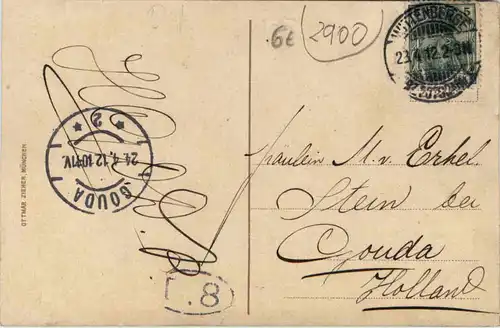 6t
2900
5
23.4.12.2-3N
OTTMAR ZIEHER, MÜNCHEN
2
24.4.12 10-11V.
GOUDA
8.
Fräulein M. v. Erkel.
Stein bei
Gouda
Holland